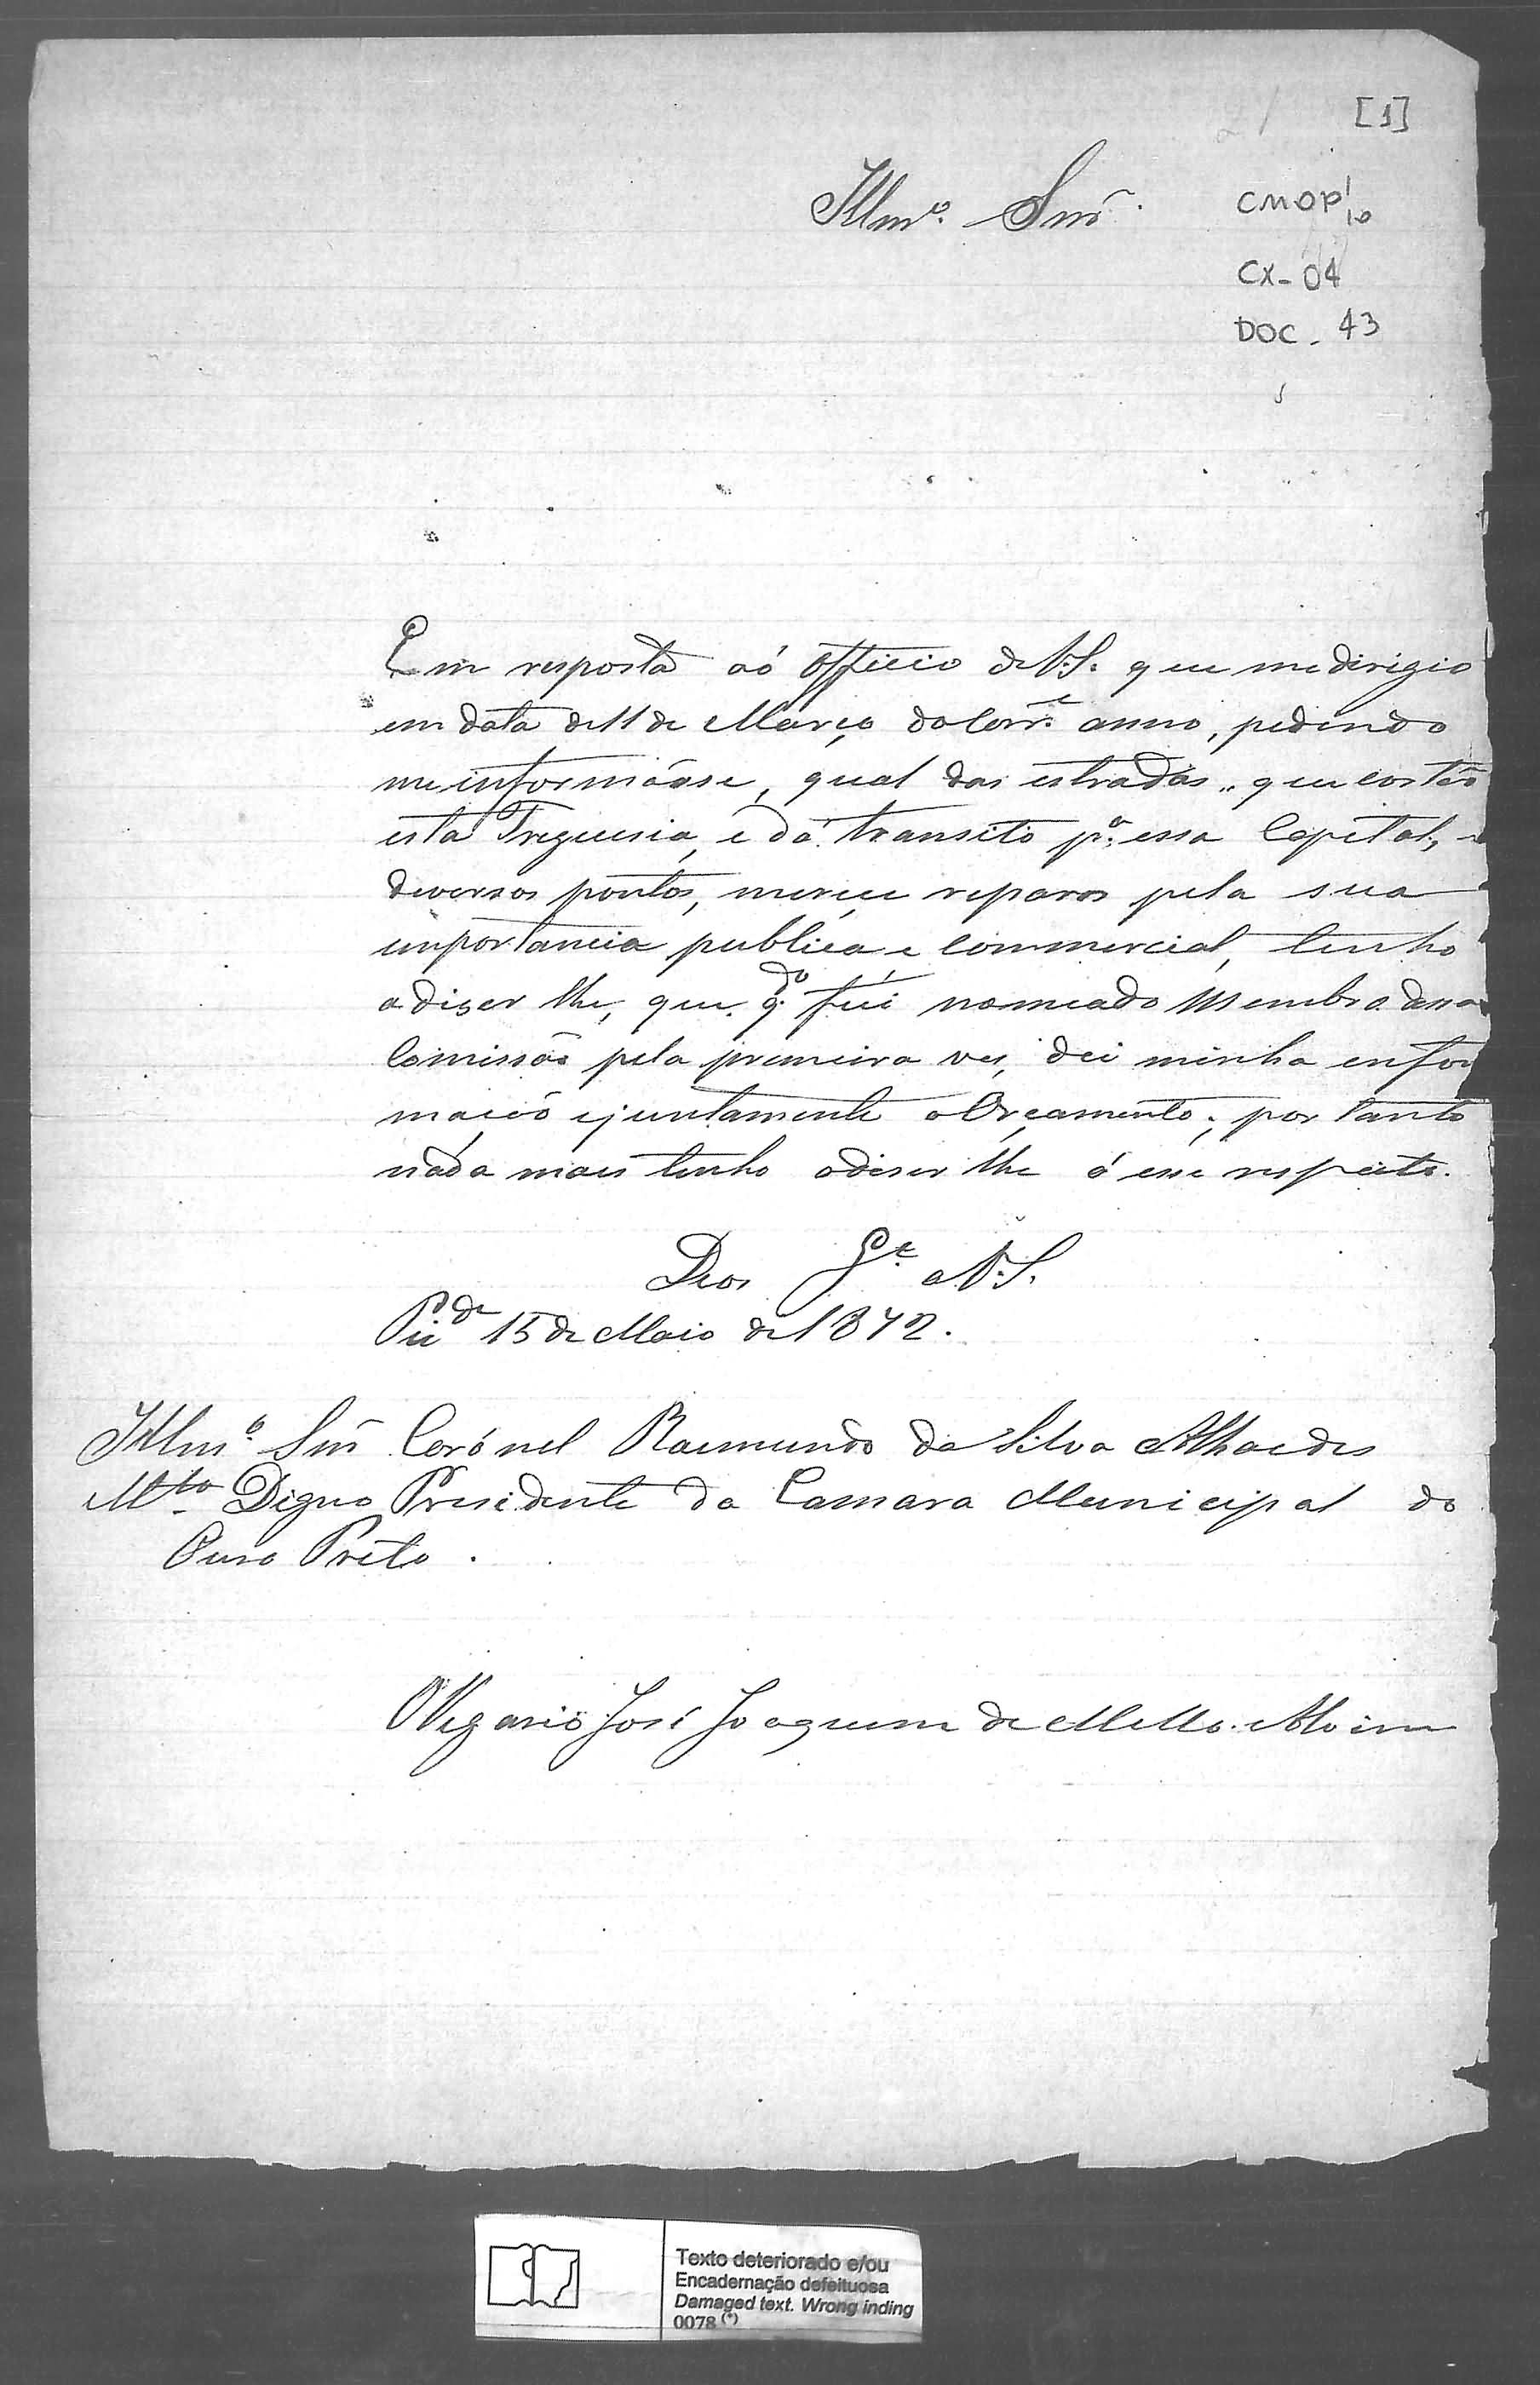 [1]
Illmº. Snr̃.
CMOP 1/10
CX- 04
DOC - 43
Em resposta aó Officio de V.S. que me dirigio
em data de 11 de Março do Corr.e anno, pedindo
me informásse, qual das estradas, que cortão
esta Freguesia, e dá transito p.ª essa Capital, e
diversos pontos, merece reparos pela sua
importancia publica e Commercial, tenho
a diser lhe, que q.do fui nomeado Membro dessa
Comissão pela primeira ves, dei minha enfor
mação e juntamente o Orçamento; por tanto
náda mais tenho a diser lhe á esse respeito.
Deos G.e a V.S.
Pied.e 15 de Maio de 1872.
Illmº. Snr̃ Corónel Raimundo da Silva
M.to Digno Presidente da Camara Municipal do
Ouro Preto.
O Vegario José Joaquim de Mello Aloim
Texto deteriorado e/ou
Encadernação defeituosa
Damaged text. Wrong inding
0078 (*)